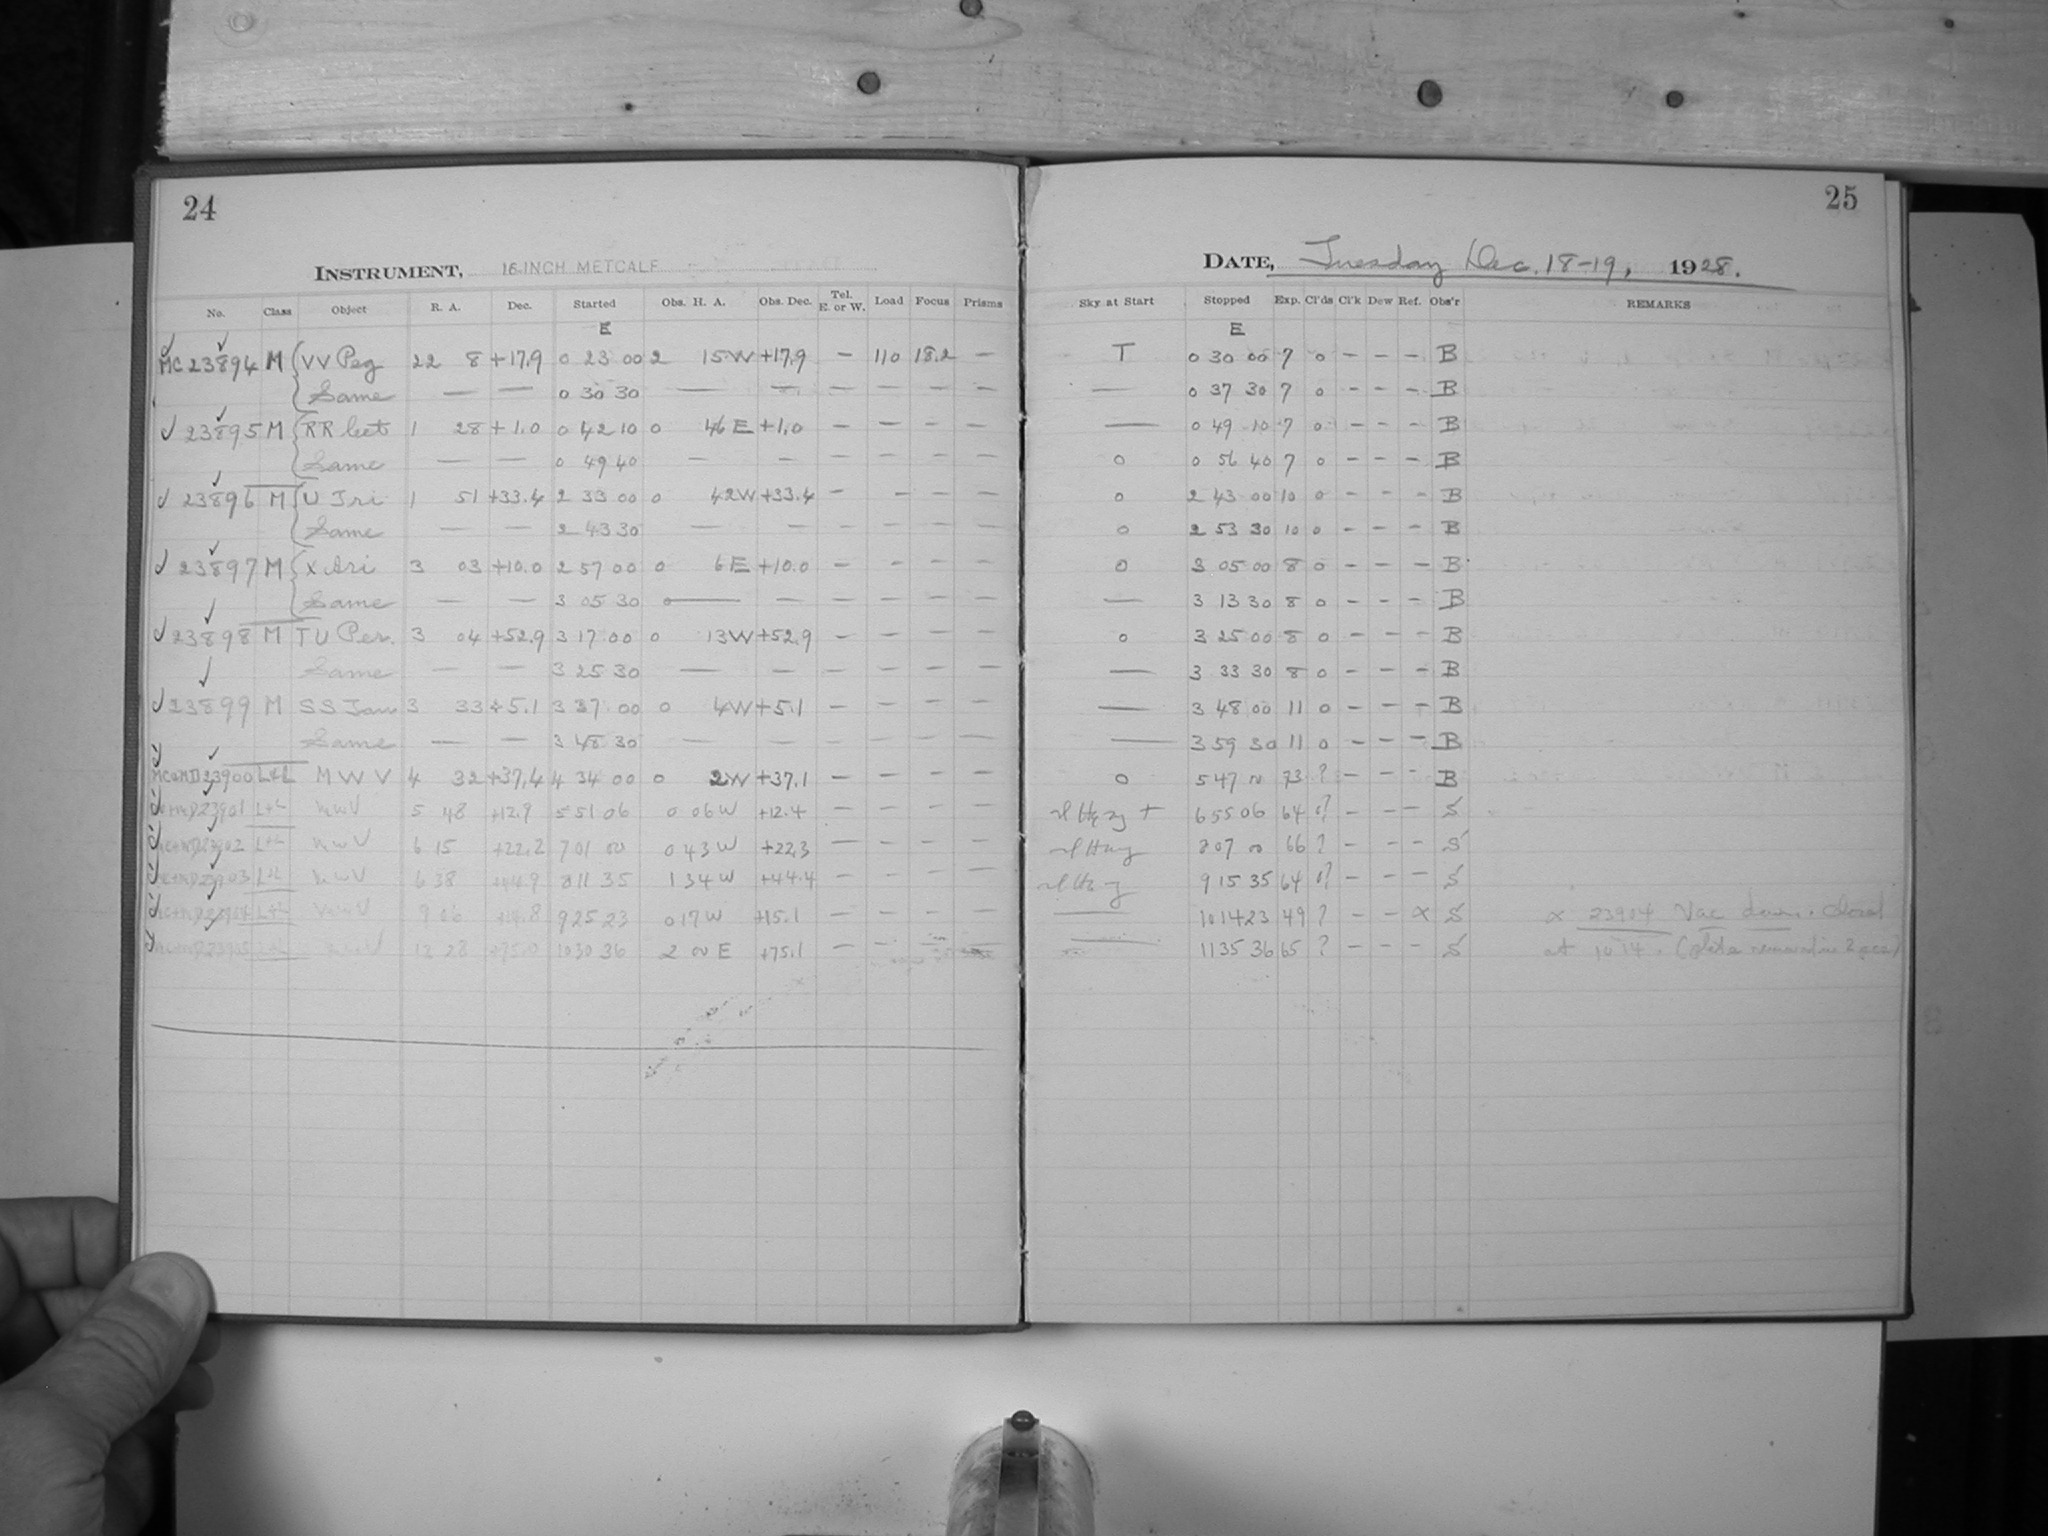 24
INSTRUMENT, 16-INCH METCALF
No. Class Object R. A. Dec. Started Obs. H. A. Obs. Dec. Tel. E. or W. Load Focus Prisms
E
MC 23894 M VV Peg 22 8 +17.9 0 23 00 2 15 W +17.9 — 110 18.2 —
Same — — 0 30 30 — — — — — —
23895 M RR 1 28 + 1.0 0 42 10 0 46 E +1.0 — — — —
Same — — 0 49 40 — — — — — —
23896 M U Tri 1 51 +33.4 2 33 00 0 42 W +33.4 — — — —
Same — — 2 43 30 — — — — — —
23897 M X Ari 3 03 +10.0 2 57 00 0 6 E +10.0 — — — —
Same — — 3 05 30 — — — — — —
23898 M TU Per. 3 04 +52.9 3 17 00 0 13 W +52.9 — — — —
Same — — 3 25 30 — — — — — —
23899 M SS Tau 3 33 +5.1 3 37 00 0 4 W +5.1 — — — —
Same — — 3 48 30 — — — — — —
MC+MD 23900 L+L M W V 4 32 +37.4 4 34 00 0 2 W +37.1 — — — —
MC+MD 23901 L+L MWV 5 48 +12.9 5 51 06 0 06 W +12.4 — — — —
MC+MD 23902 L+L MWV 6 15 +22.2 7 01 00 0 43 W +22.3 — — — —
MC+MD 23903 L+L MWV 6 38 +44.9 8 11 35 1 34 W +44.4 — — — —
MC+MD 23904 L+L MWV 9 06 +14.8 9 25 23 0 17 W +15.1 — — — —
MC+MD 23905 L+L MWV 12 28 +75.0 10 30 36 2 00 E +75.1 — —
25
DATE, Tuesday Dec. 18-19, 1928.
Sky at Start Stopped Exp. Cl'ds Cl'k Dew Ref. Obs'r REMARKS
E
T 0 30 00 7 0 — — — B
— 0 37 30 7 0 — — — B
— 0 49 10 7 0 — — — B
0 0 56 40 7 0 — — — B
0 2 43 00 10 0 — — — B
0 2 53 30 10 0 — — — B
0 3 05 00 8 0 — — — B
— 3 13 30 8 0 — — — B
0 3 25 00 8 0 — — — B
— 3 33 30 8 0 — — — B
— 3 48 00 11 0 — — — B
— 3 59 30 11 0 — — — B
0 5 47 00 73 ? — — — B
6 55 06 64 0? — — — S
8 07 00 66 ? — — — S
9 15 35 64 0? — — — S
— 10 14 23 49 ? — — x S x 23904 Vac down. Closed
— 11 35 36 65 ? — — — S at 10 14. (plate remained in